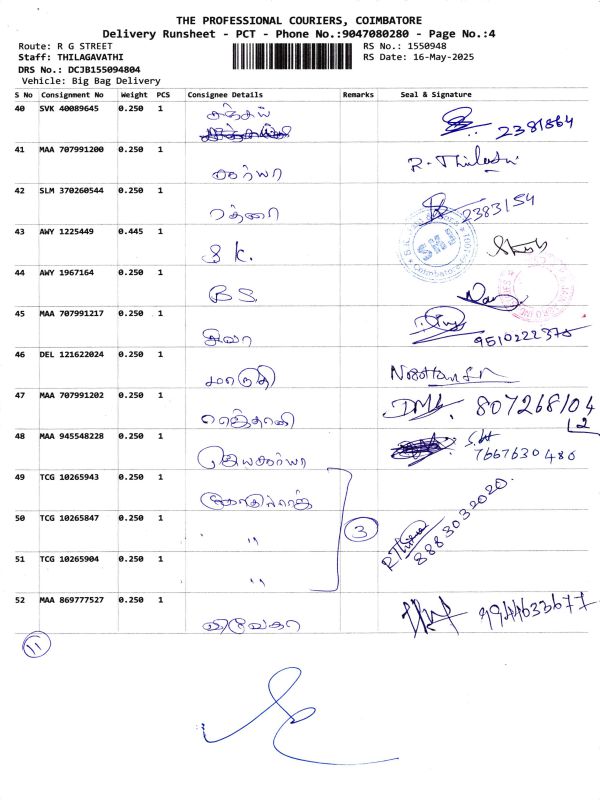 THE PROFESSIONAL COURIERS, COIMBATORE
Delivery Runsheet - PCT - Phone No.:9047080280 - Page No.:4
Route: R G STREET
RS No.: 1550948
Staff: THILAGAVATHI
RS Date: 16-May-2025
DRS No.: DCJB155094804
Vehicle: Big Bag Delivery
S No Consignment No Weight PCS Consignee Details Remarks Seal & Signature
40 SVK 40089645 0.250 1
2381864
41 MAA 707991200 0.250 1
சூர்யா
42 SLM 370260544 0.250 1
2383154
43 AWY 1225449 0.445 1
S K.
44 AWY 1967164 0.250 1
B S.
45 MAA 707991217 0.250 1
9510222370
46 DEL 121622024 0.250 1
மாருதி
47 MAA 707991202 0.250 1
807268104
2
48 MAA 945548228 0.250 1
ஜெயசூர்யா
7667630480
49 TCG 10265943 0.250 1
50 TCG 10265847 0.250 1
"
3
8883032020
51 TCG 10265904 0.250 1
"
52 MAA 869777527 0.250 1
9944633677
11